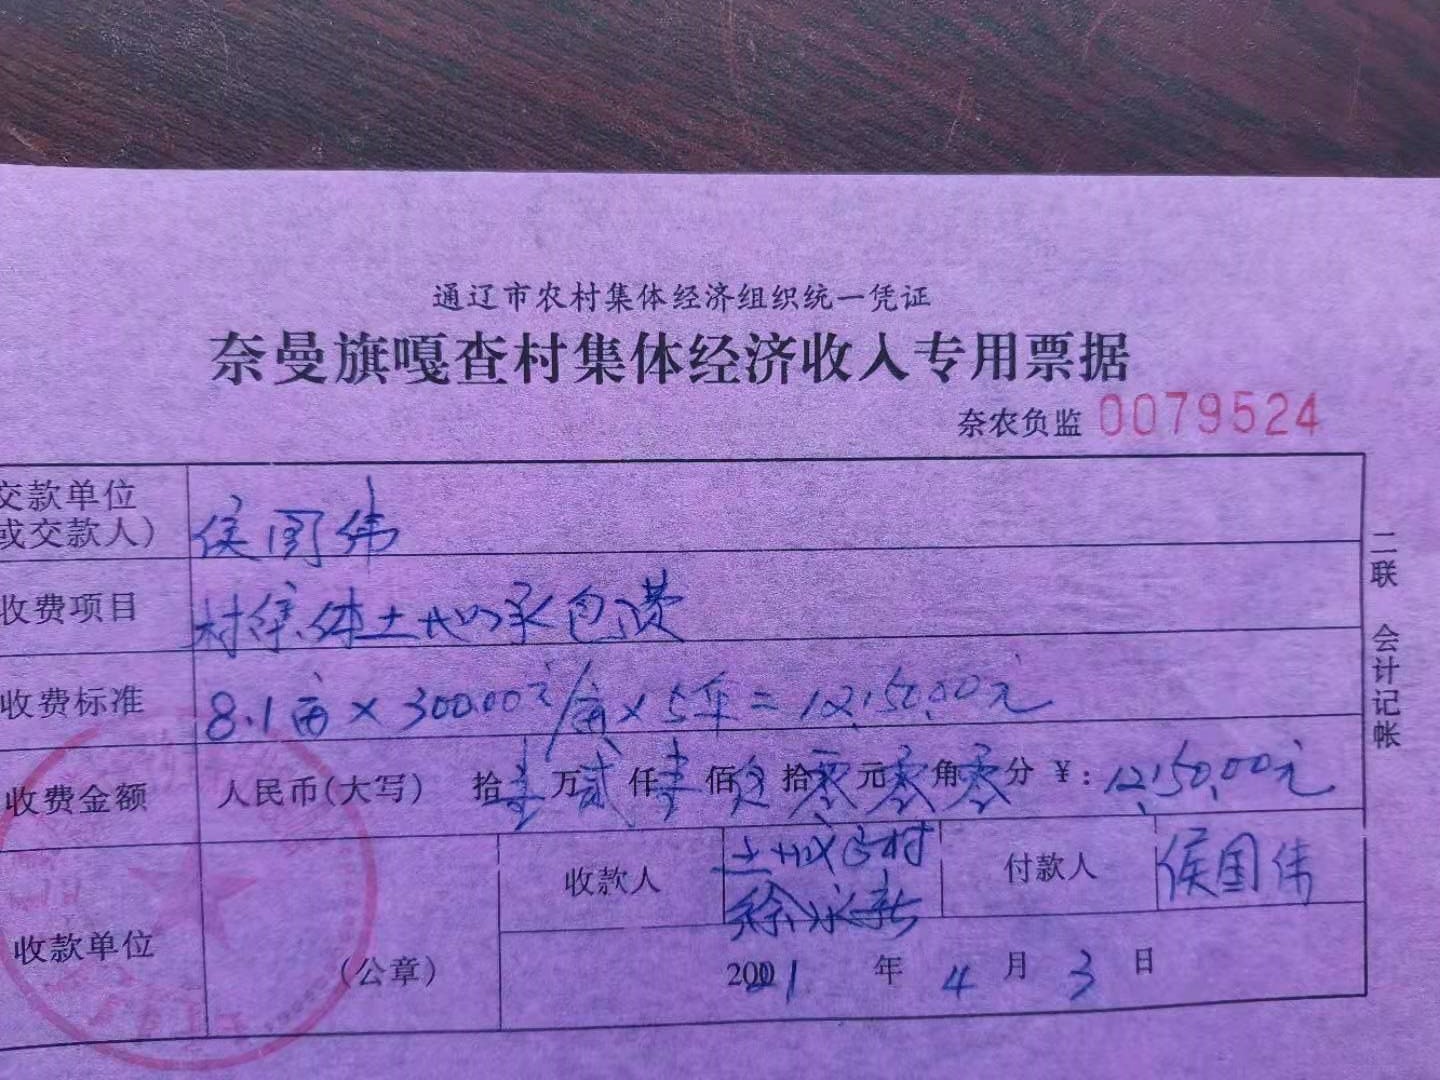 通辽市农村集体经济组织统一凭证
奈曼旗嘎查村集体经济收入专用票据
奈农负监 0079524
交款单位
或交款人)
侯国伟
收费项目
村集体土地承包费
收费标准
8.1亩×300.00元/亩×5年=12,150.00元
收费金额
人民币(大写) 拾壹万贰仟壹佰伍拾零元零角零分 ¥:12,150.00元
收款单位
(公章)
收款人
土城子村
徐永新
付款人
侯国伟
2021年4月3日
二联 会计记帐